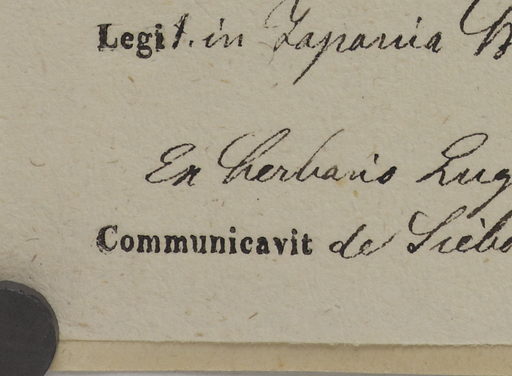 Legit. in Japonia
Ex herbario Lug
Communicavit de Siebo